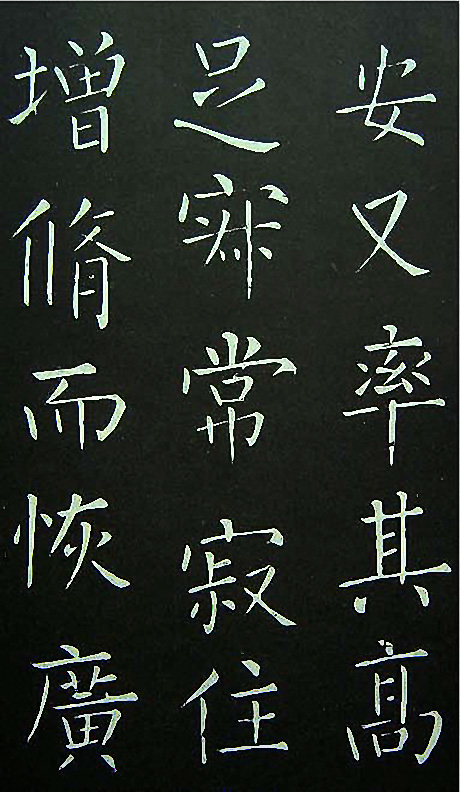 安又率其高
足常寂住
增脩而恢廣